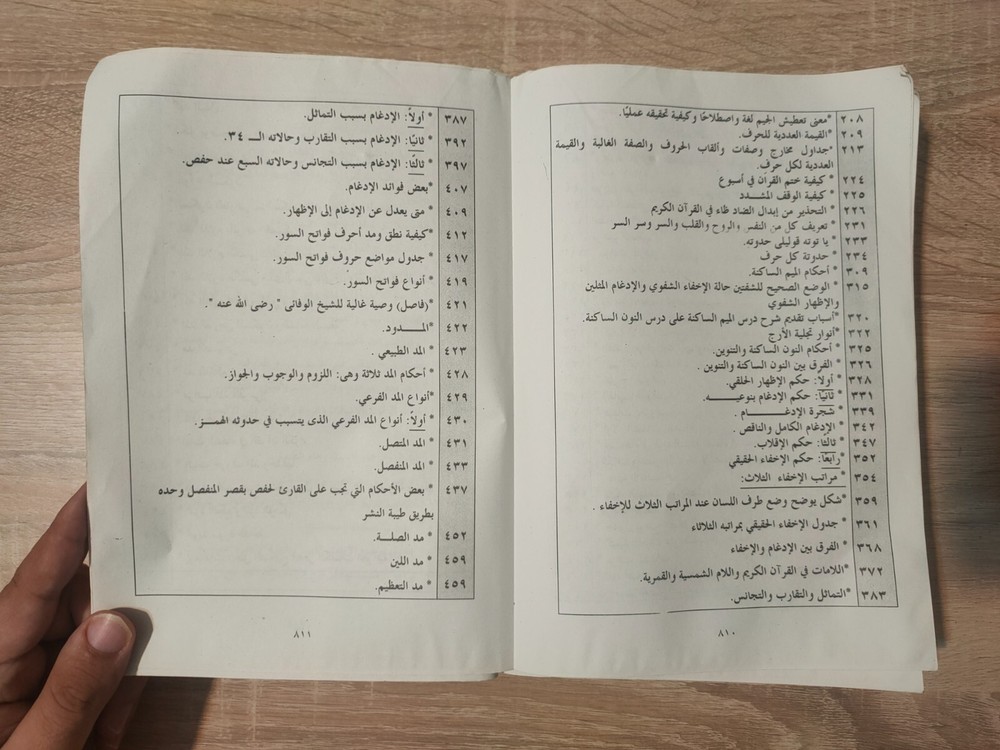 ٢٠٨ *معنى تعطيش الجيم لغة واصطلاحًا وكيفية تحقيقه عمليًا.
٢٠٩ *القيمة العددية للحرف.
٢١٣ *جداول مخارج وصفات وألقاب الحروف والصفة الغالبة والقيمة
العددية لكل حرف.
٢٢٤ * كيفية ختم القرآن في أسبوع
٢٢٥ * كيفية الوقف المشـدد
٢٢٦ * التحذير من إبدال الضاد ظاء في القرآن الكريم
٢٣١ * تعريف كل من النفس والروح والقلب والسر وسر السر
٢٣٣ * يا توته قوليلى حدوته.
٢٣٤ * حدوتة كل حرف
٣٠٩ * أحكام الميم الساكنة.
٣١٥ * الوضع الصحيح للشفتين حالة الإخفاء الشفوي والإدغام المثلين
والإظهار الشفوي
٣٢٠ *أسباب تقديم شرح درس الميم الساكنة على درس النون الساكنة.
٣٢٢ *أنوار تجلية الأرج
٣٢٥ * أحكام النون الساكنة والتنوين.
٣٢٦ * الفرق بين النون الساكنة والتنوين .
٣٢٨ * أولاً: حكم الإظهار الحلقي.
٣٣١ * ثانيًا: حكم الإدغام بنوعيـــه.
٣٣٩ * شجرة الإدغـــــام .
٣٤٢ * الإدغام الكامل والناقص .
٣٤٧ * ثالثا: حكم الإقلاب.
٣٥٢ *رابعًا: حكم الإخفاء الحقيقي
٣٥٤ *مراتب الإخفاء الثلاث:
٣٥٩ *شكل يوضح وضع طرف اللسان عند المراتب الثلاث للإخفاء .
٣٦١ * جدول الإخفاء الحقيقي بمراتبه الثلاثاء
٣٦٨ * الفرق بين الإدغام والإخفاء
٣٧٢ *اللامات في القرآن الكريم واللام الشمسية والقمرية.
٣٨٣ *التماثل والتقارب والتجانس.
٨١٠
٣٨٧ * أولاً: الإدغام بسبب التماثل.
٣٩٢ * ثانيًا: الإدغام بسبب التقارب وحالاته الـــ ٣٤.
٣٩٧ * ثالثًا: الإدغام بسبب التجانس وحالاته السبع عند حفص.
٤٠٧ *بعض فوائد الإدغام.
٤٠٩ * متى يعدل عن الإدغام إلى الإظهار.
٤١٢ *كيفية نطق ومد أحرف فواتح السور.
٤١٧ * جدول مواضع حروف فواتح السور.
٤١٩ * أنواع فواتح السور.
٤٢١ *(فاصل) وصية غالية للشيخ الوفائى " رضى الله عنه ".
٤٢٢ *المـــــدود.
٤٢٣ * المد الطبيعي .
٤٢٨ * أحكام المد ثلاثة وهى: اللزوم والوجوب والجواز.
٤٢٩ *أنواع المد الفرعي.
٤٣٠ * أولاً: أنواع المد الفرعي الذى يتسبب في حدوثه الهمـــز.
٤٣١ * المد المتصل.
٤٣٣ * المد المنفصل.
٤٣٧ * بعض الأحكام التي تجب على القارئ لحفص بقصر المنفصل وحده
بطريق طيبة النشر
٤٥٢ * مد الصلـــة.
٤٥٩ * مد اللين
٤٥٩ * مد التعظيم.
٨١١